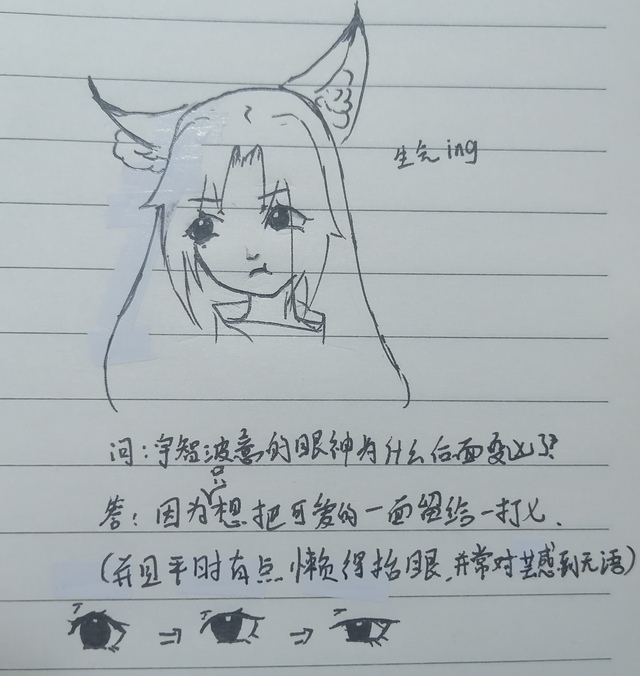 生气ing
问：宇智波意的眼神为什么后面变凶了？
答：因为想把可爱的一面留给一打乂.
(并且平时有点懒得抬眼,并常对其感到无语)